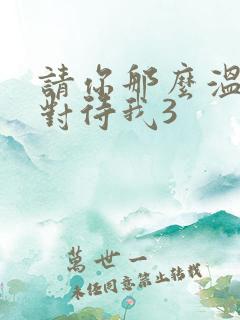 請你那麼溫
對待我3
萬世一
未經同意禁止轉載